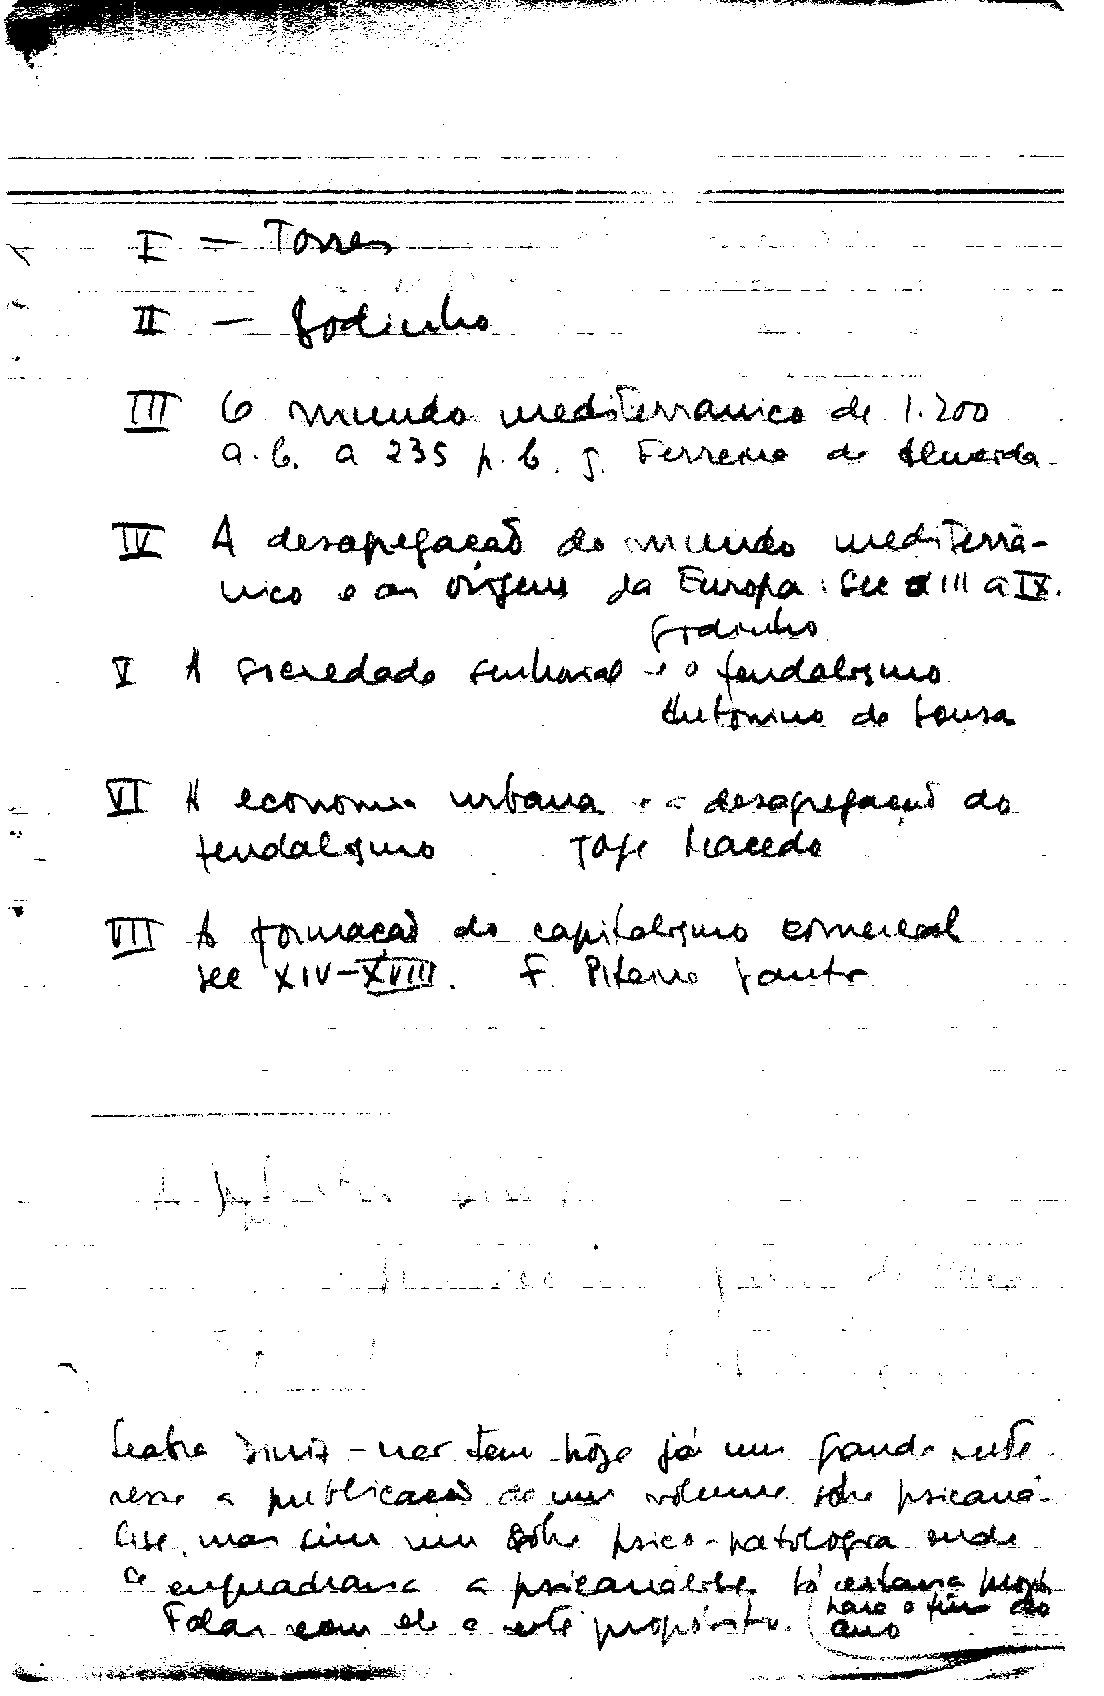 I — Torres
II — Godinho
III O mundo mediterranico de 1.200
a.C. a 235 p.C. J. Ferreira de Almeida
IV A desagregação do mundo mediterrâ-
nico e as origens da Europa: Sec III a IX.
Godinho
V A sociedade senhorial e o feudalismo
Antonino de Sousa
VI A economia urbana e a desagregação do
feudalismo Jorge Macedo
VII A formação do capitalismo comercial
sec XIV-XVIII. F. Piteira Santos
Seabra Diniz - não tem hoje já um grande inte
resse a publicação de um volume sôbre psicaná-
lise, mas sim um sôbre psico-patologia onde
se enquadrasse a psicanalise. Só estaria
para o fim do
Falar com ele a este propósito. ano